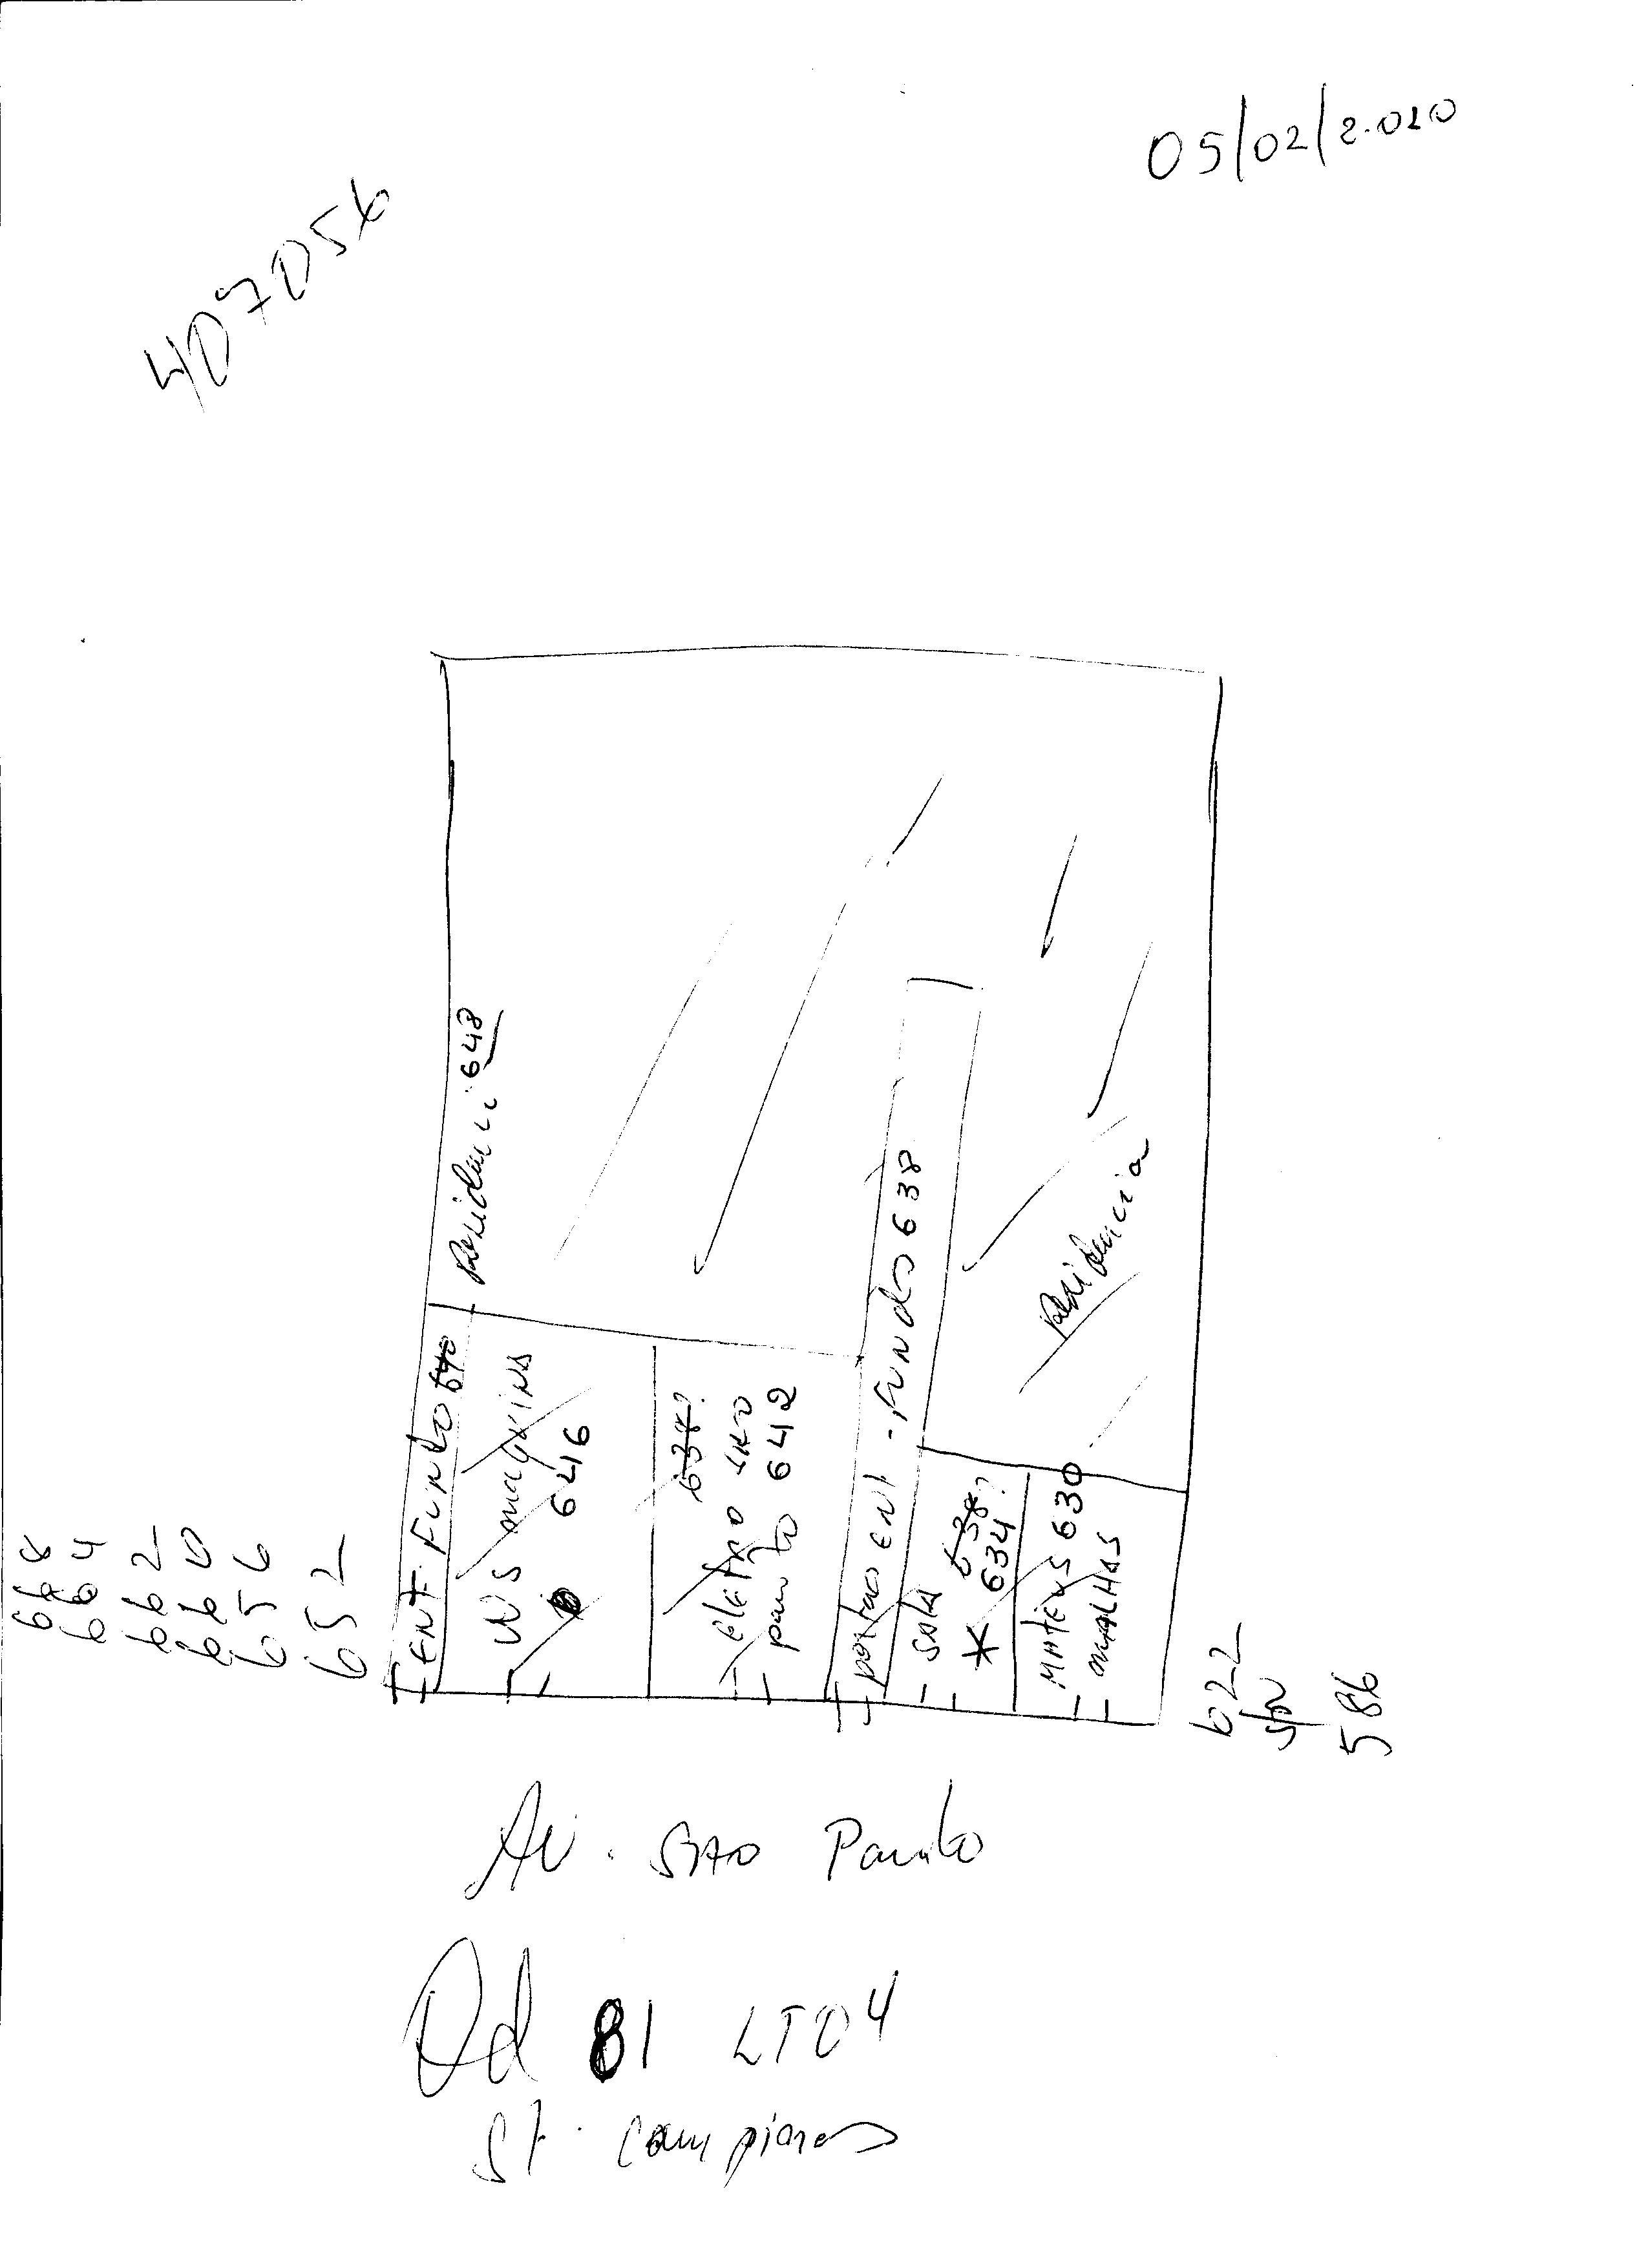 05/02/2.020
407056
668
664
662
660
656
652
ENT. FUNDO 640
Residenci 648
WS maquinas
646
638?
eletro sko
paulo 642
portao ENT - FUNDOS 638
sala 638?
* 634
MATEUS 630
MALHAS
Residencia
622
S/N
586
Av. SÃO Paulo
Qd 81 LT04
St. Campinas